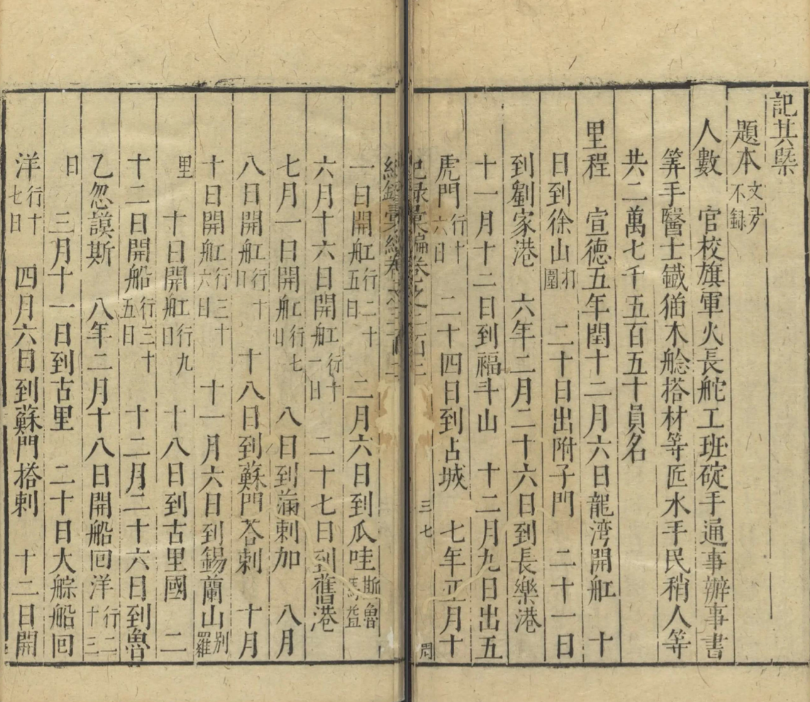 記其槩
題本文多不錄
人數　官校旗軍火長舵工班碇手通事辦事書
筭手醫士鐵猫木艌搭材等匠水手民稍人等
共二萬七千五百五十員名
里程　宣德五年閏十二月六日龍灣開舡　十
日到徐山打圍　二十日出附子門　二十一日
到劉家港　六年二月二十六日到長樂港
十一月十二日到福斗山　十二月九日出五
虎門行十六日　二十四日到占城　七年正月十
紀錄彙編卷之二百二
三七
一日開舡行二十五日　二月六日到瓜哇斯魯馬益
六月十六日開舡行十一日　二十七日到舊港
七月一日開舡行七日　八日到滿剌加　八月
八日開舡行十日　十八日到蘇門荅剌　十月
十日開舡行三十六日　十一月六日到錫蘭山別羅
里　十日開舡行九日　十八日到古里國　二
十二日開船行三十五日　十二月二十六日到魯
乙忽謨斯　八年二月十八日開船回洋行二十三
日　三月十一日到古里　二十日大䑸船回
洋行十七日　四月六日到蘇門搭剌　十二日開